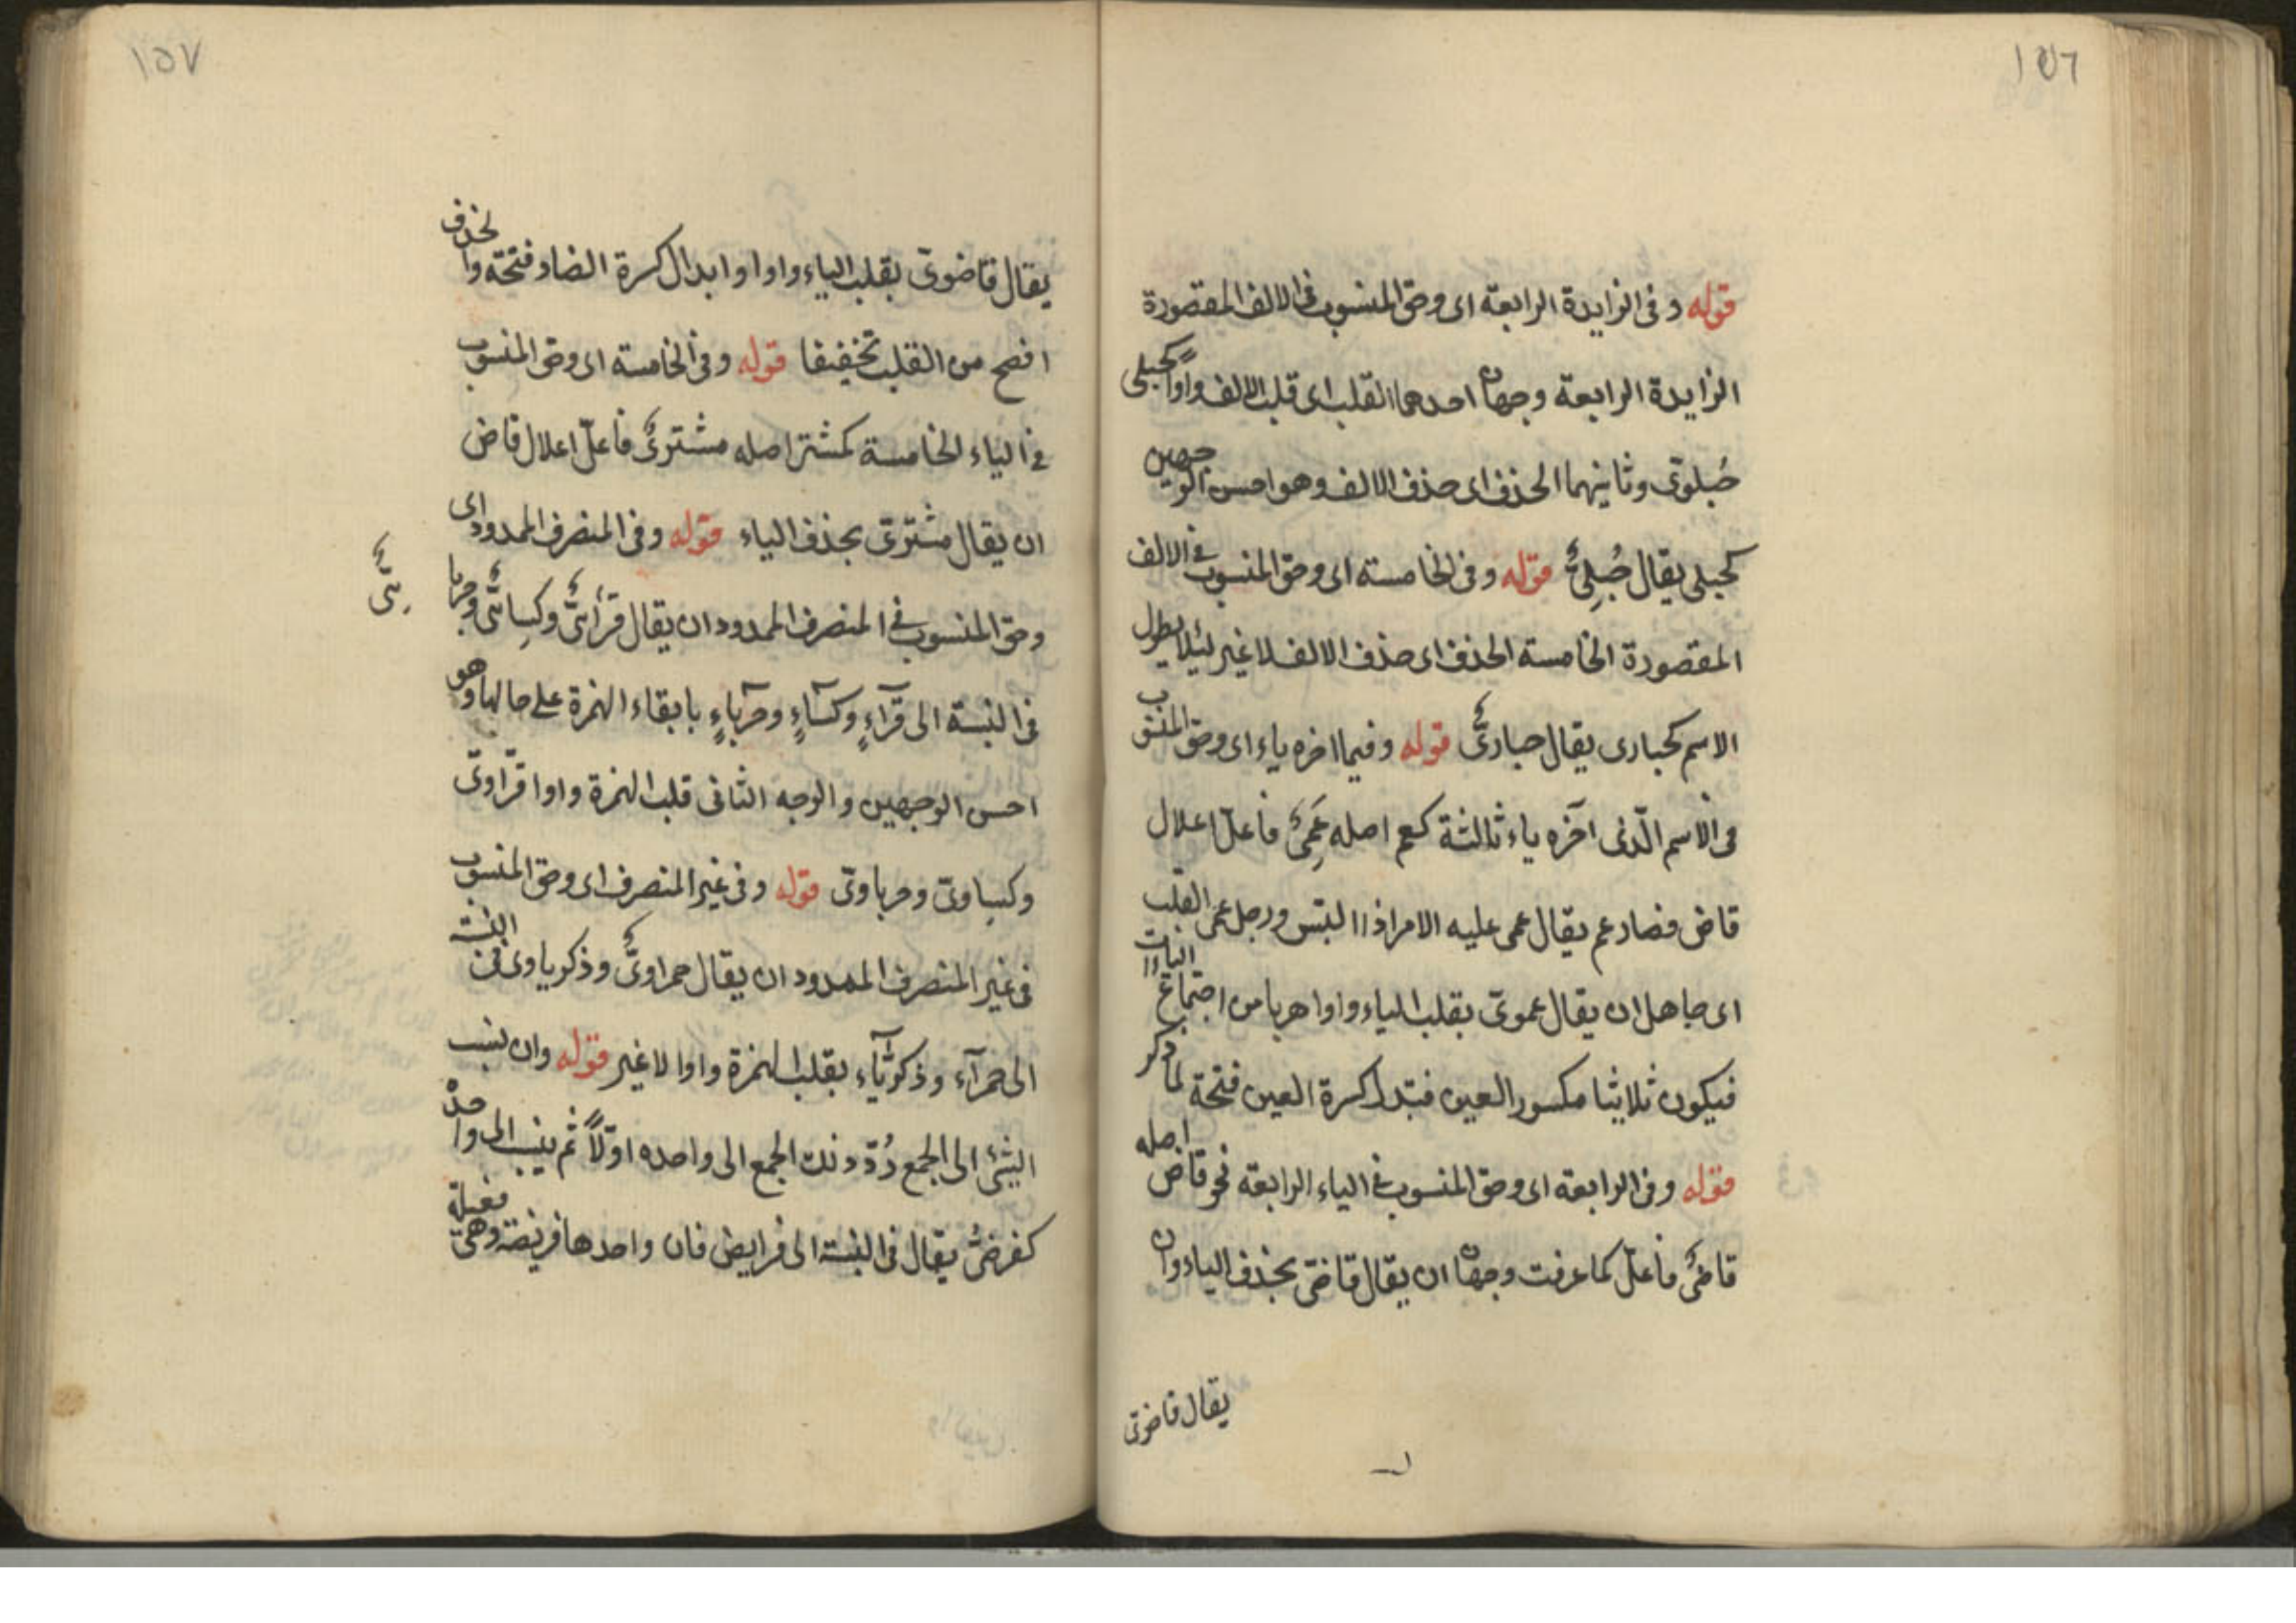 ١٥٦
قوله وفى الزايدة الرابعة اى وحق المنسوب فى الالف المقصورة
الزايدة الرابعة وجهان احدهما القلب اى قلب الالف واوا كحبلى
حُبلوىّ وثانيهما الحذف اى حذف الالف وهو احسن الوجهين
كحبلى يقال حُبلِىٌّ قوله وفى الخامسة اى وحق المنسوب فى الالف
المقصورة الخامسة الحذف اى حذف الالف لا غير لئلا يطول
الاسم كحبارى يقال حبارىٌّ قوله وفيما اخره ياء اى وحق المنسوب
فى الاسم الّذى آخره ياء ثالثة كعم اصله عَمِىٌ فاعلّ اعلال
قاض فصار عم يقال عمى عليه الامر اذا التبس ورجل عمى القلب
اى جاهل ان يقال عموىّ بقلب الياء واوا هربا من اجتماع اليات
فيكون ثلاثيا مكسور العين فتبدل كسرة العين فتحة لما ذكر
قوله وفى الرابعة اى وحق المنسوب فى الياء الرابعة نحو قاض اصله
قاضىٌ فاعلّ كما عرفت وجهان ان يقال قاضىّ بحذف الياء وان
يقال قاضوىّ
١٥٧
يقال قاضوىّ بقلب الياء واوا وابدال كسرة الضاد فتحة والحذف
افصح من القلب تخفيفا قوله وفى الخامسة اى وحق المنسوب
فى الياء الخامسة كمشتر اصله مشترىٌ فاعلّ اعلال قاض
ان يقال مشترىّ بحذف الياء قوله وفى المنصرف الممدود اى
وحق المنسوب فى المنصرف الممدود ان يقال قرّائىٌّ وكِسائىٌّ وحربا
ئىٌّ
فى النسبة الى قرّآءٍ وكسآءٍ وحربآءٍ بابقاء الهمزة على حالها وهو
احسن الوجهين والوجه الثانى قلب الهمزة واوا قرّاوىّ
وكساوىّ وحرباوىّ قوله وفى غير المنصرف اى وحق المنسوب
فى غير المنصرف الممدود ان يقال حمراوىٌّ وذكرياوى فى النسبة
الى حمرآء وذكريّآء بقلب الهمزة واوا لا غير قوله وان نسب
الشئ الى الجمع رُدّ ذلك الجمع الى واحده اوّلاً ثم ينسب الى واحده
كفرضىٌّ يقال فى النسبة الى فرايض فان واحدها فريضة وهى فعيلة